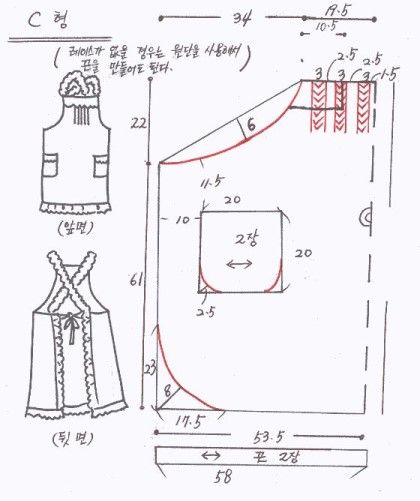 C 형
( 레이스가 없을 경우는 원단을 사용해서
끈을 만들어도 된다. )
34
19.5
10.5
2.5
2.5
3
3
3
1.5
22
6
11.5
20
10
2장
20
(앞면)
61
2.5
23
8
17.5
(뒷면)
53.5
끈 2장
58